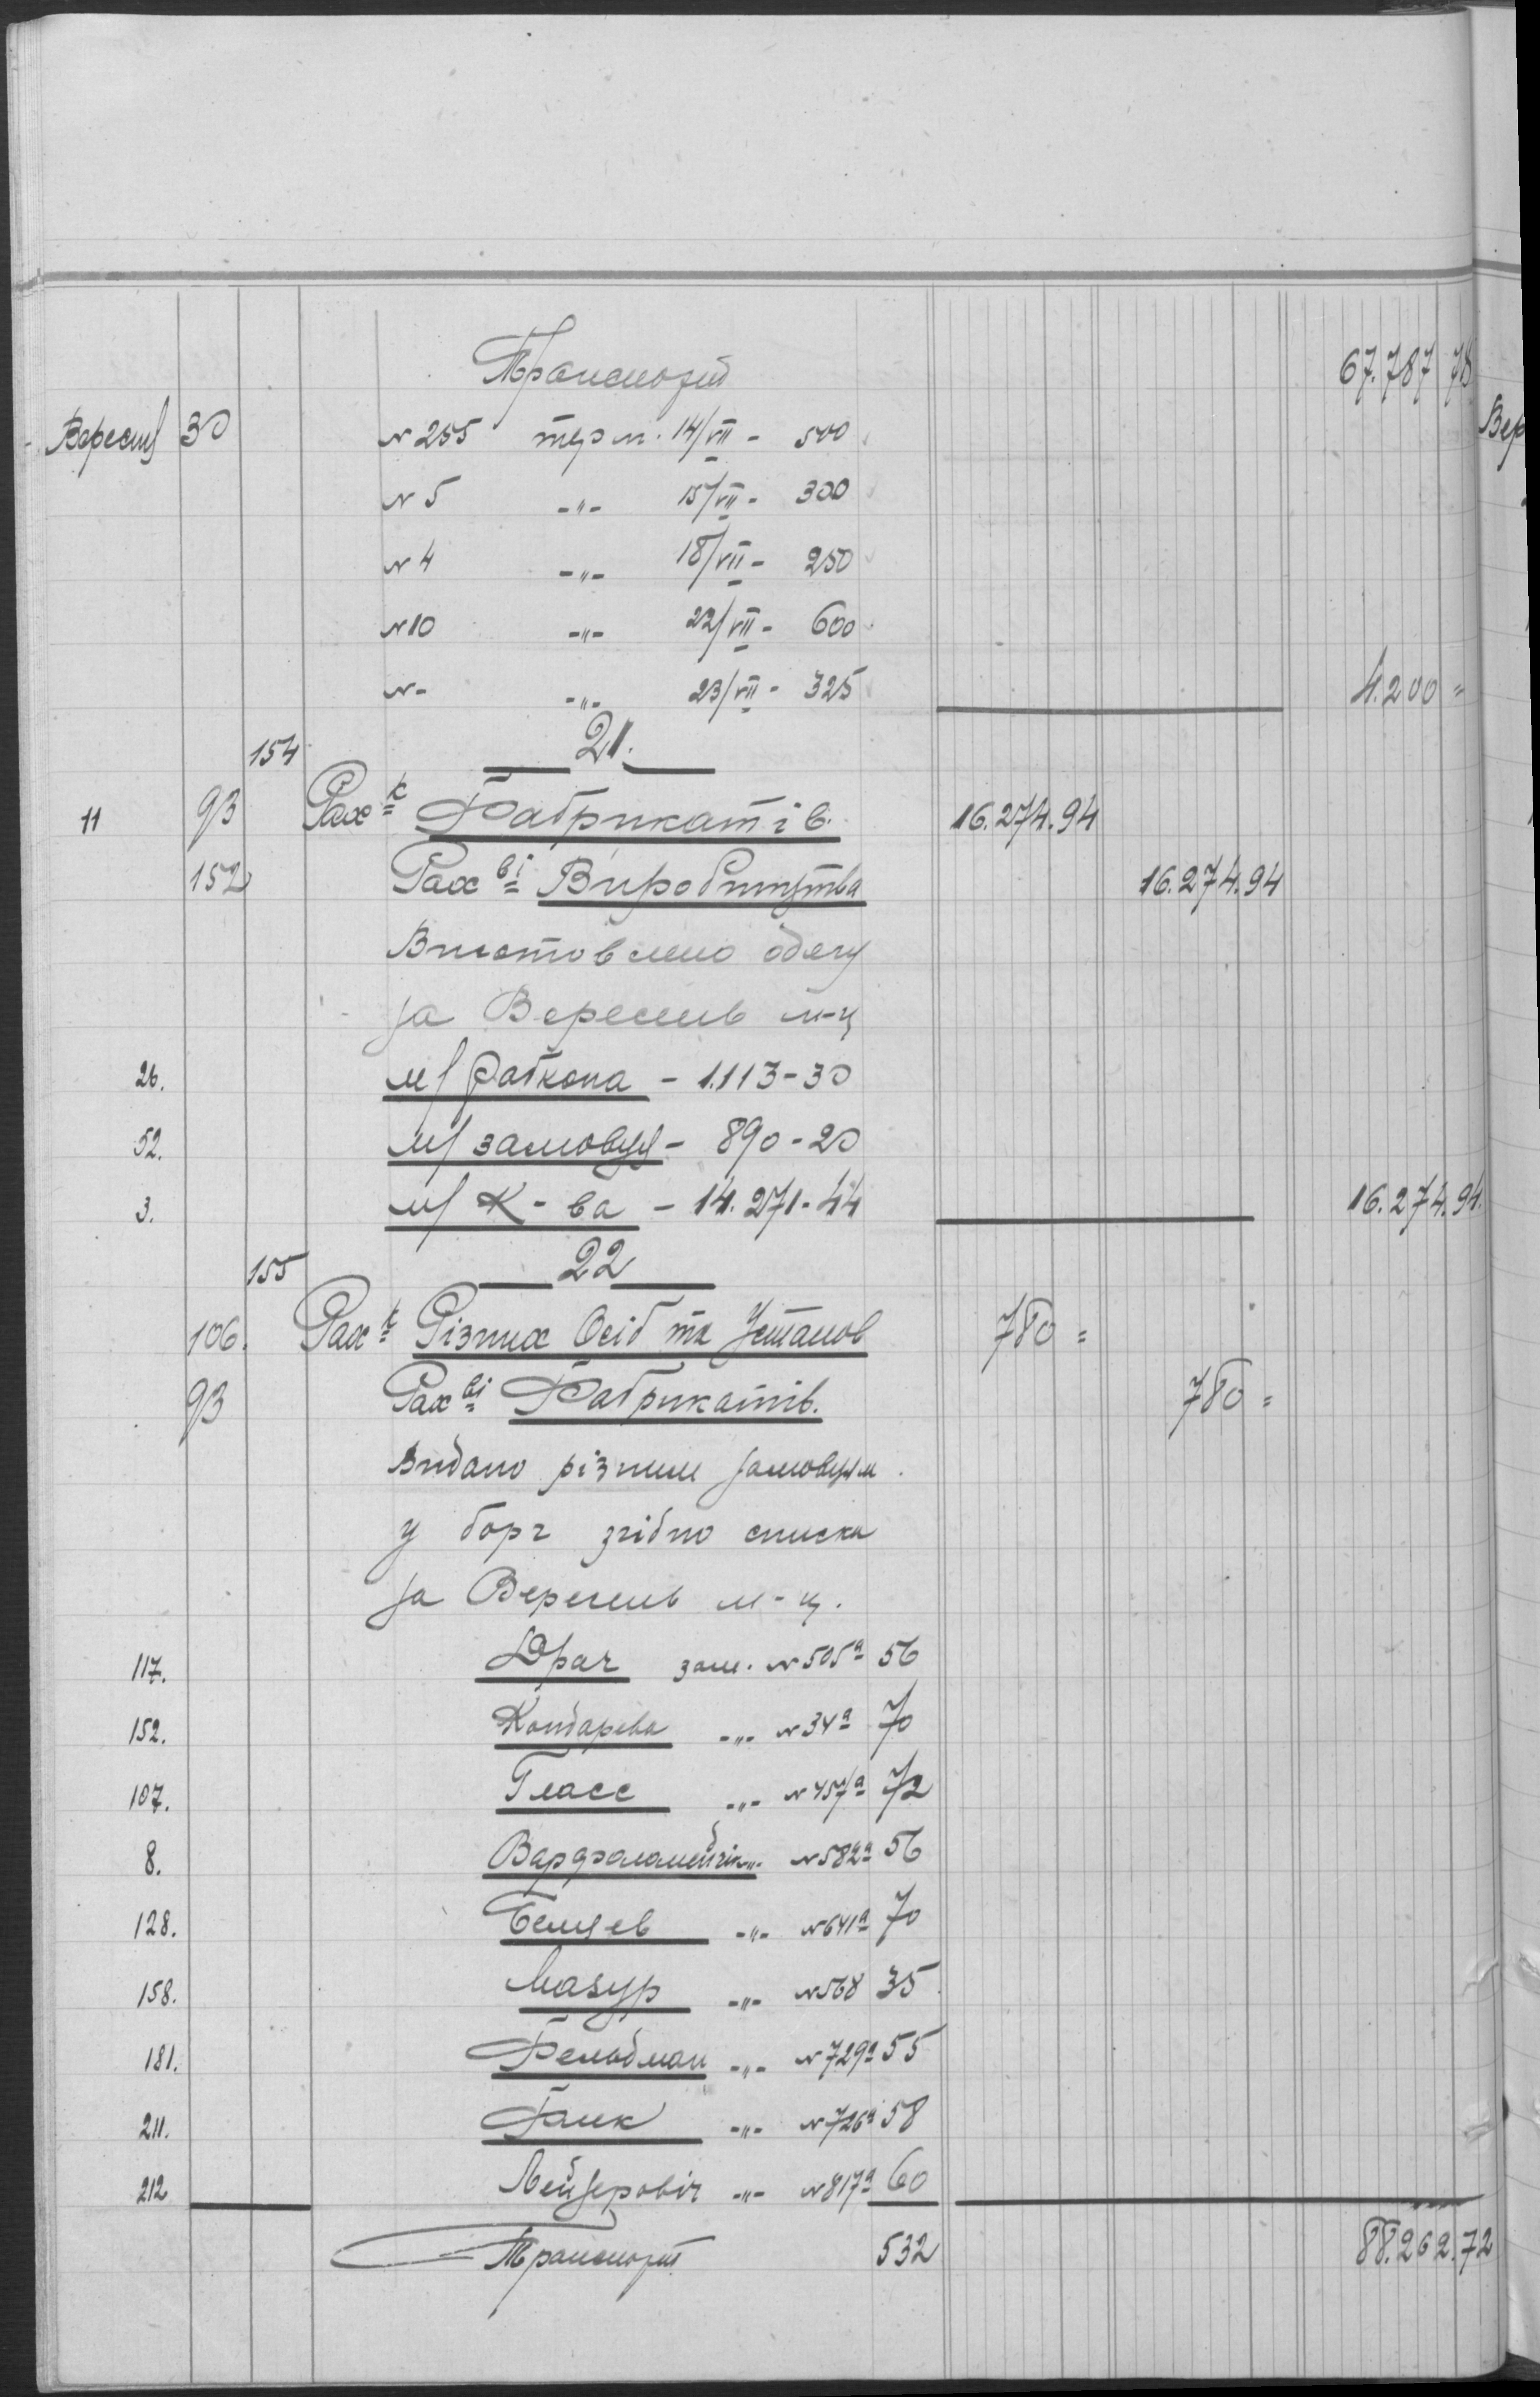 Транспорт 67.787 78
Вересня 30 № 255 терм. 14/VII - 500
№ 5 -"- 15/VII - 300
№ 4 -"- 18/VII - 250
№ 10 -"- 22/VII - 600
№ - -"- 23/VII - 325 4.200 =
154 21.
11 93 Рах-к Фабрикатів. 16.274.94
152 Рах-ві Виробництва 16.274.94
Виготовлено одягу
за Вересень м-ц
26. м/ Рабкопа - 1.113-30
52. м/ замовц - 890-20
3. м/ К-ва - 14.271-44 16.274.94.
155 22
106. Рах-к Різних Осіб та Установ 780 =
93 Рах-ві Фабрикатів. 780 =
Видано різним замовцям
у борг згідно списка
за Вересень м-ц.
117. Драч зам. № 505а 56
152. Кондарева -"- № 34а 70
107. Гласс -"- № 457а 72
8. -"- № 582а 56
128. -"- № 641а 70
158. Мазур -"- № 568 35
181. Фельдман -"- № 729а 55
211. Фанк -"- № 726а 58
212 Лейзеровіч -"- № 817а 60
Транспорт 532 88.262.72
Вер